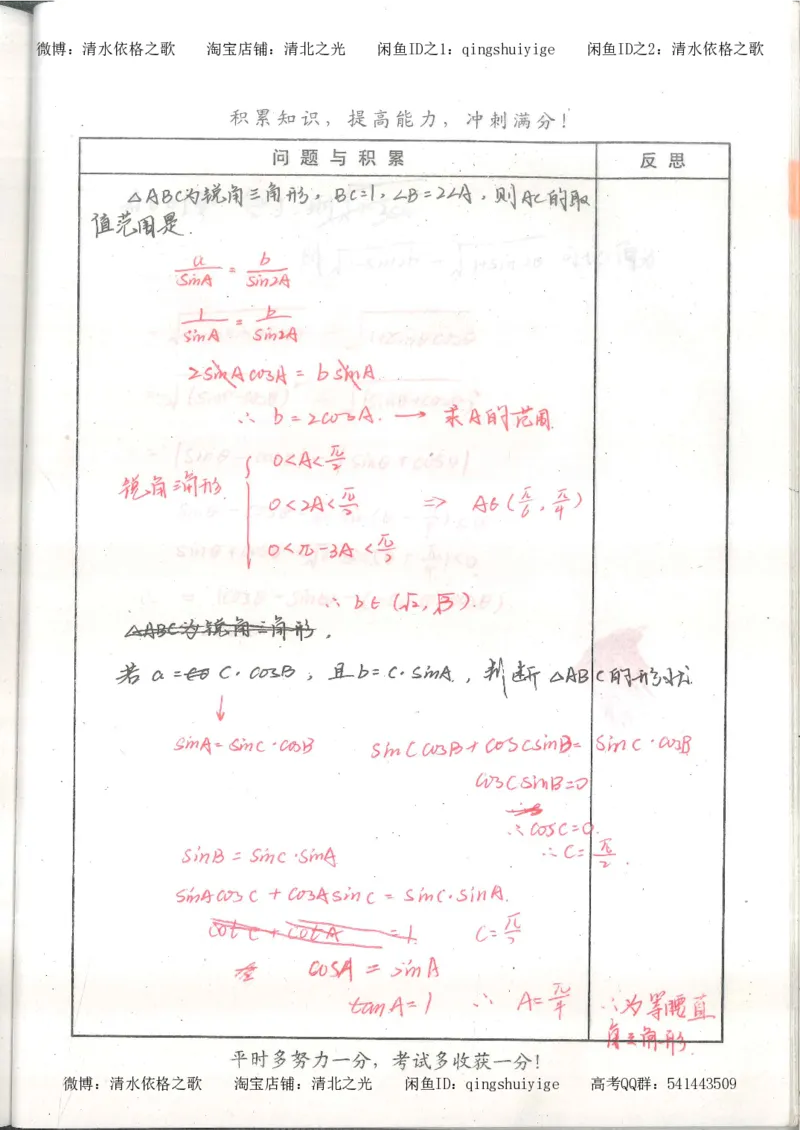 微博：清水依格之歌 淘宝店铺：清北之光 闲鱼ID之1：qingshuiyige 闲鱼ID之2：清水依格之歌
积累知识，提高能力，冲刺满分！
问题与积累 反思
△ABC为锐角三角形，BC=1，∠B=2∠A，则AC的取
值范围是.
a/sinA = b/sin2A
1/sinA = b/sin2A
2sinAcosA = bsinA.
∴ b=2cosA. → 求A的范围
锐角三角形
0<A<π/2
0<2A<π/2 ⇒ A∈(π/6, π/4)
0<π-3A<π/2
∴ b∈(√2,√3).
△ABC为锐角三角形，
若 a = c·cosB，且b=c·sinA，判断△ABC的形状
↓
sinA=sinC·cosB sinCcosB+cosCsinB=sinC·cosB
cosCsinB=0
∴cosC=0.
∴C=π/2.
sinB=sinC·sinA
sinAcosC+cosAsinC=sinC·sinA.
cotC+cotA=1. C=π/2
cosA=sinA
tanA=1 ∴ A=π/4 ∴为等腰直
角三角形.
平时多努力一分，考试多收获一分！
微博：清水依格之歌 淘宝店铺：清北之光 闲鱼ID：qingshuiyige 高考QQ群：541443509